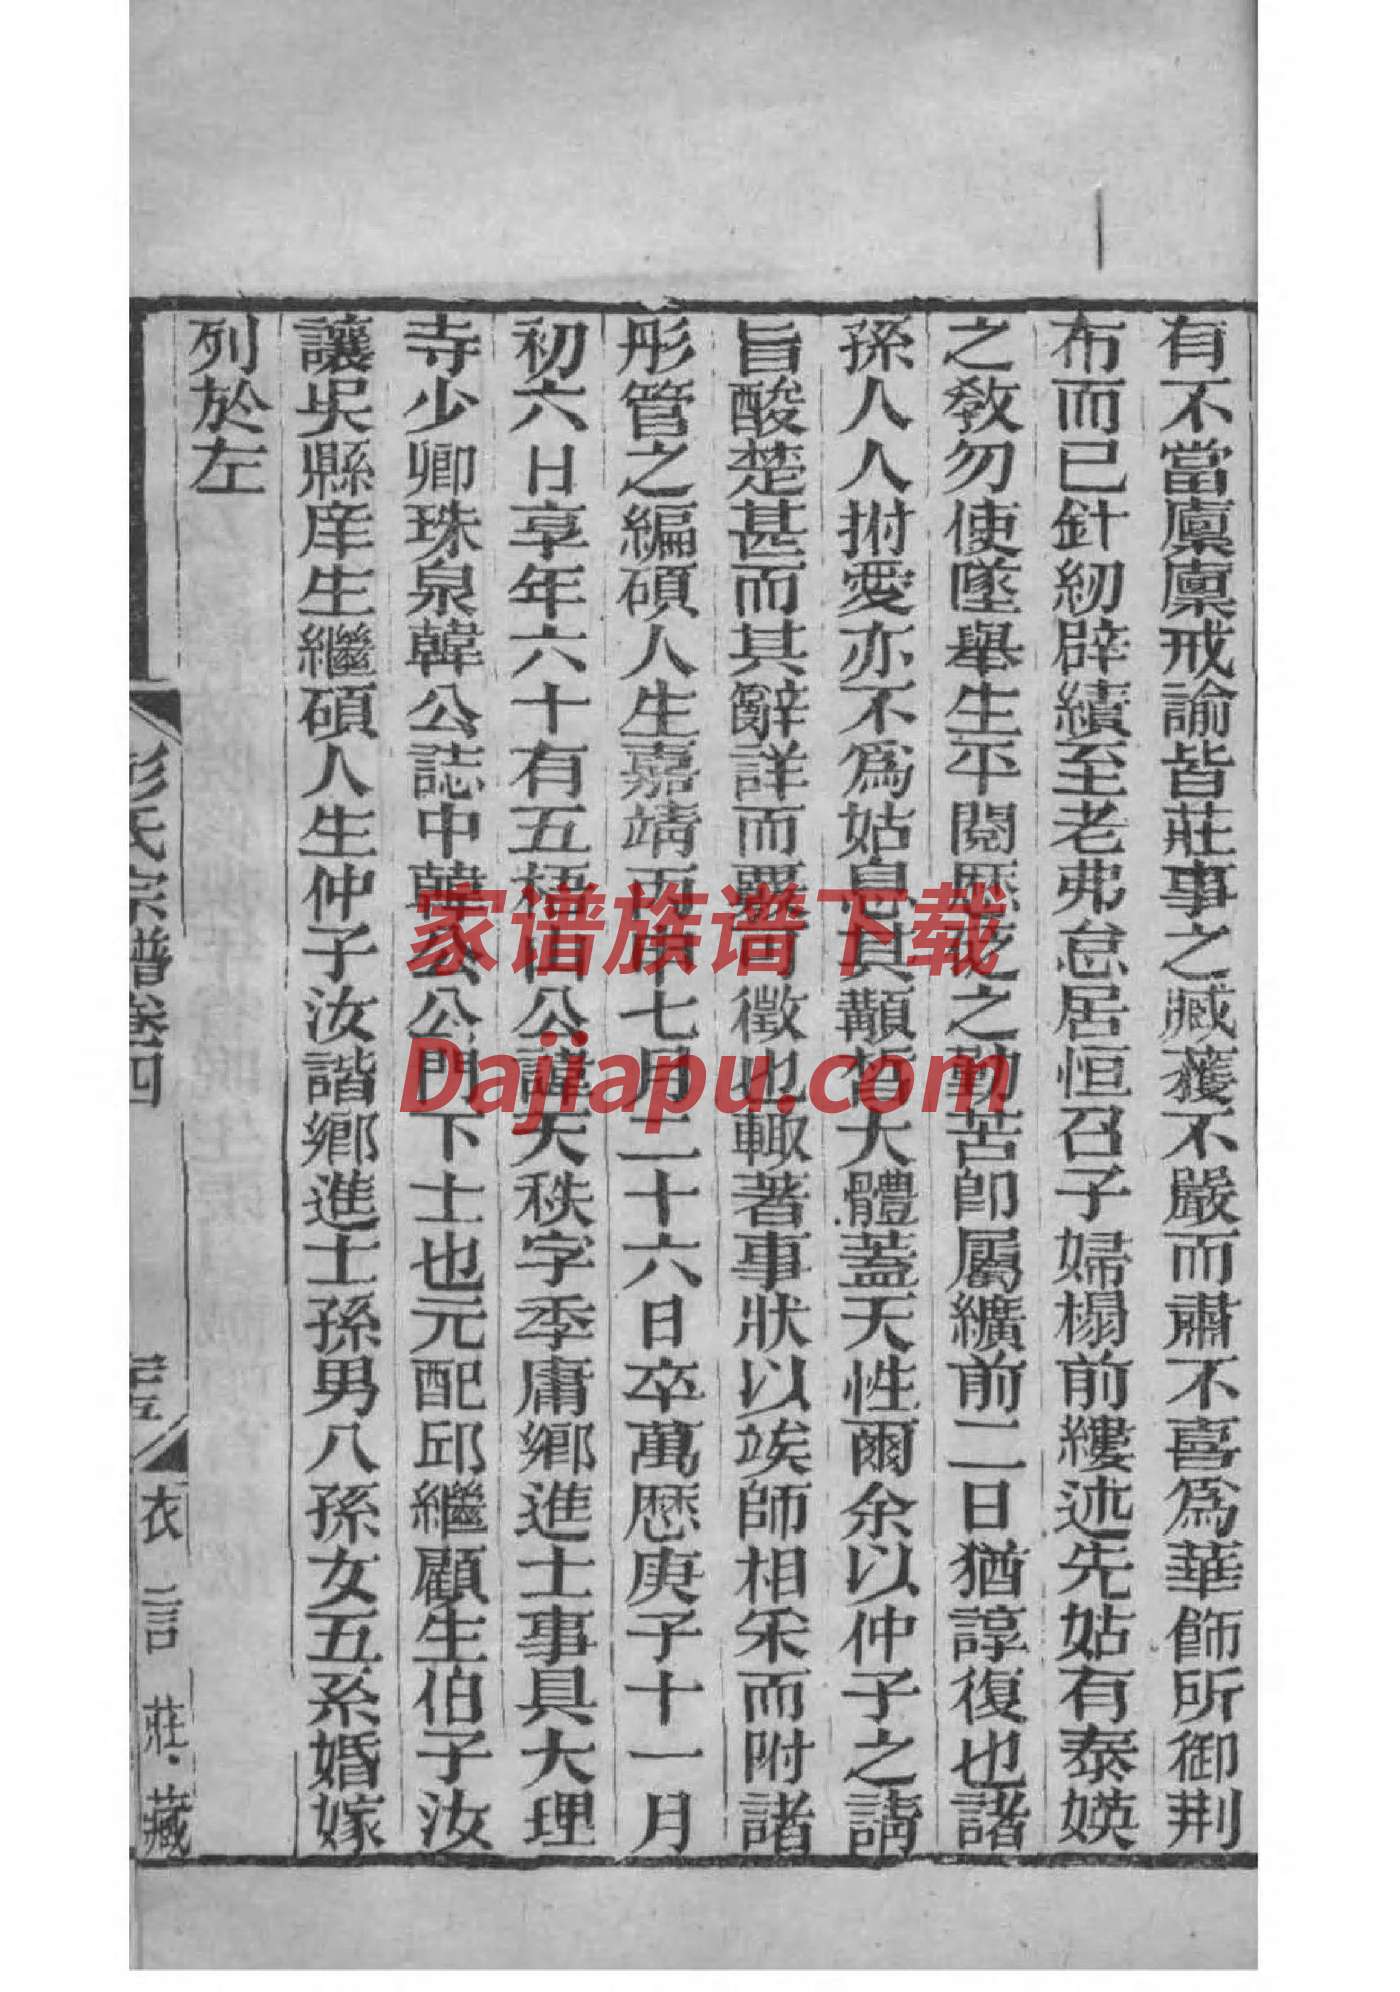 有不當廩廩戒諭皆莊事之臧蒦不嚴而肅不喜爲華飾所御荆
布而已針紉辟績至老弗怠居恒召子婦榻前縷述先姑有泰媖
之敎勿使墜舉生平閱歷之勤苦卽屬纊前二日猶諄復也諸
孫人人拊愛亦不爲姑息其顜若大體蓋天性爾余以仲子之請
旨酸楚甚而其辭詳而覈可徵也輙著事狀以竢師相采而附諸
彤管之編碩人生嘉靖丙申七月二十六日卒萬歷庚子十一月
初六日享年六十有五梧山公諱天秩字季庸鄉進士事具大理
寺少卿珠泉韓公誌中韓公公門下士也元配邱繼顧生伯子汝
讓吳縣庠生繼碩人生仲子汝諧鄉進士孫男八孫女五系婚嫁
列於左
彭氏宗譜卷四
衣言莊藏
家谱族谱下载
Dajiapu.com